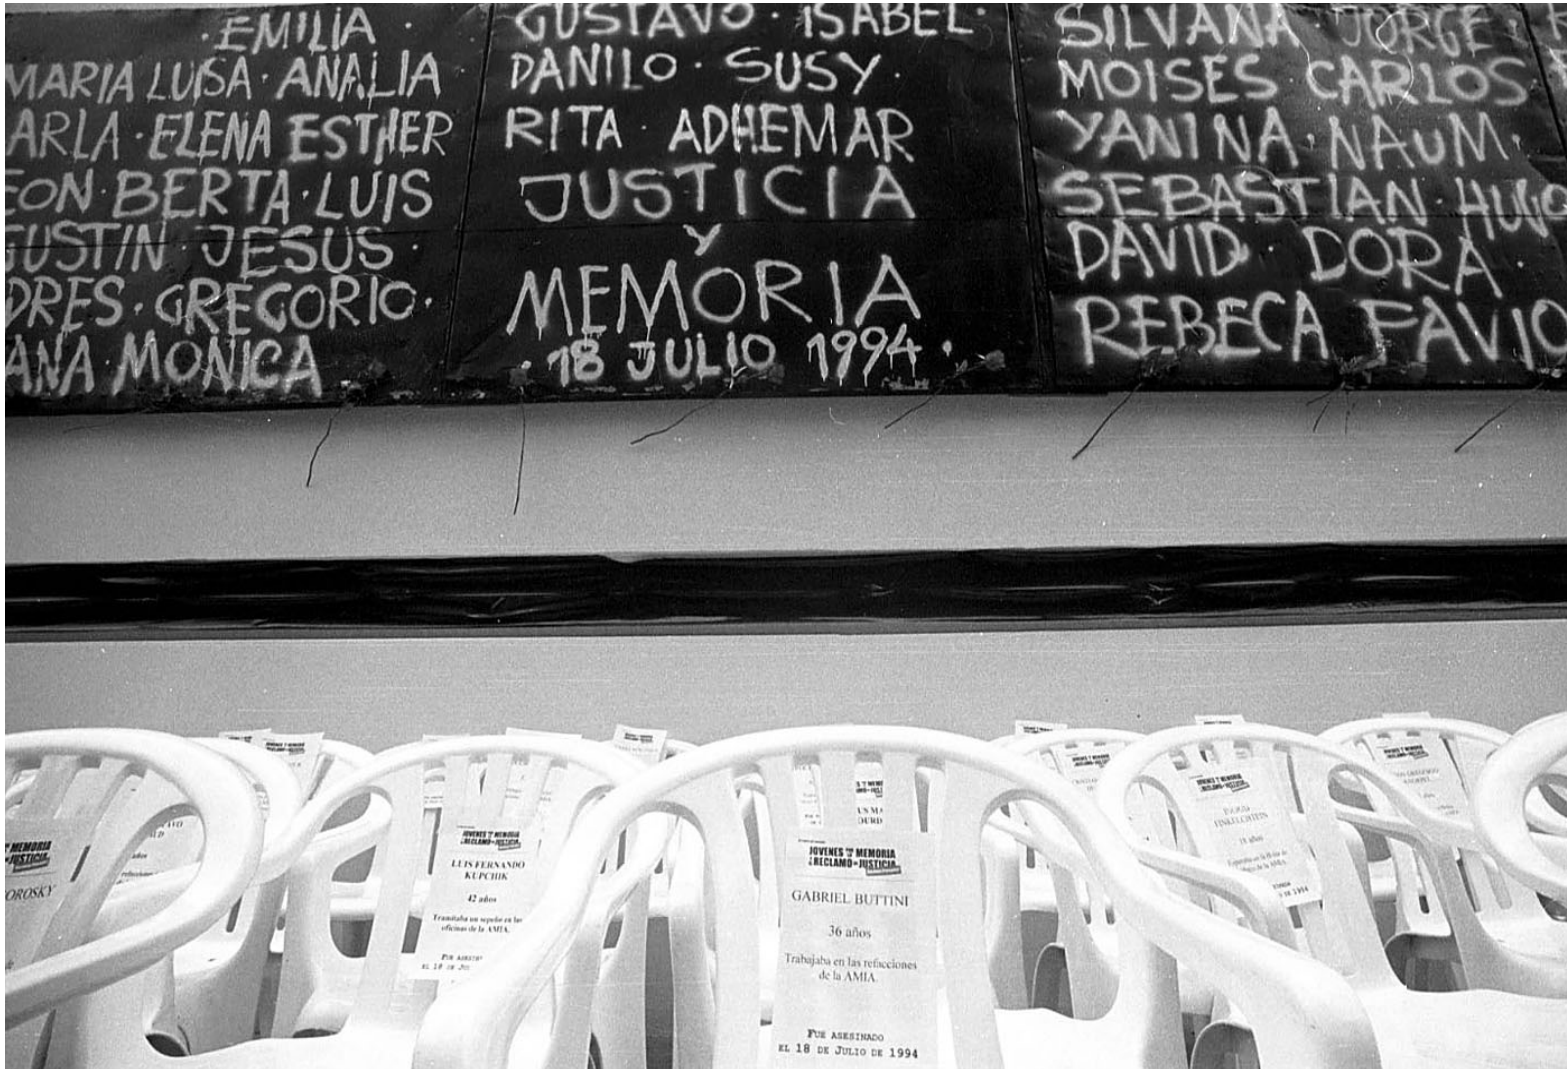 · EMILIA ·
MARIA LUISA · ANALIA
ARLA · ELENA ESTHER
EON · BERTA · LUIS
GUSTIN · JESUS ·
DRES · GREGORIO ·
ANA · MONICA
GUSTAVO · ISABEL ·
DANILO · SUSY ·
RITA · ADHEMAR
JUSTICIA
Y
MEMORIA
· 18 JULIO 1994 ·
SILVANA JORGE ·
MOISES CARLOS
YANINA · NAUM ·
SEBASTIAN · HUGO
DAVID · DORA ·
REBECA FAVIO
MEMORIA
JUSTICIA
OROSKY
JOVENES POR LA MEMORIA
Y EL RECLAMO DE JUSTICIA
LUIS FERNANDO
KUPCHIK
42 años
Tramitaba un sepelio en las
oficinas de la AMIA.
FUE ASESIN
EL 18 DE JUL
JOVENES POR LA MEMORIA
Y EL RECLAMO DE JUSTICIA
GABRIEL BUTTINI
36 años
Trabajaba en las refacciones
de la AMIA.
FUE ASESINADO
EL 18 DE JULIO DE 1994
JOVENES POR LA MEMORIA
RECLAMO DE JUSTICIA
18 años
de la AMIA.
DE 1994